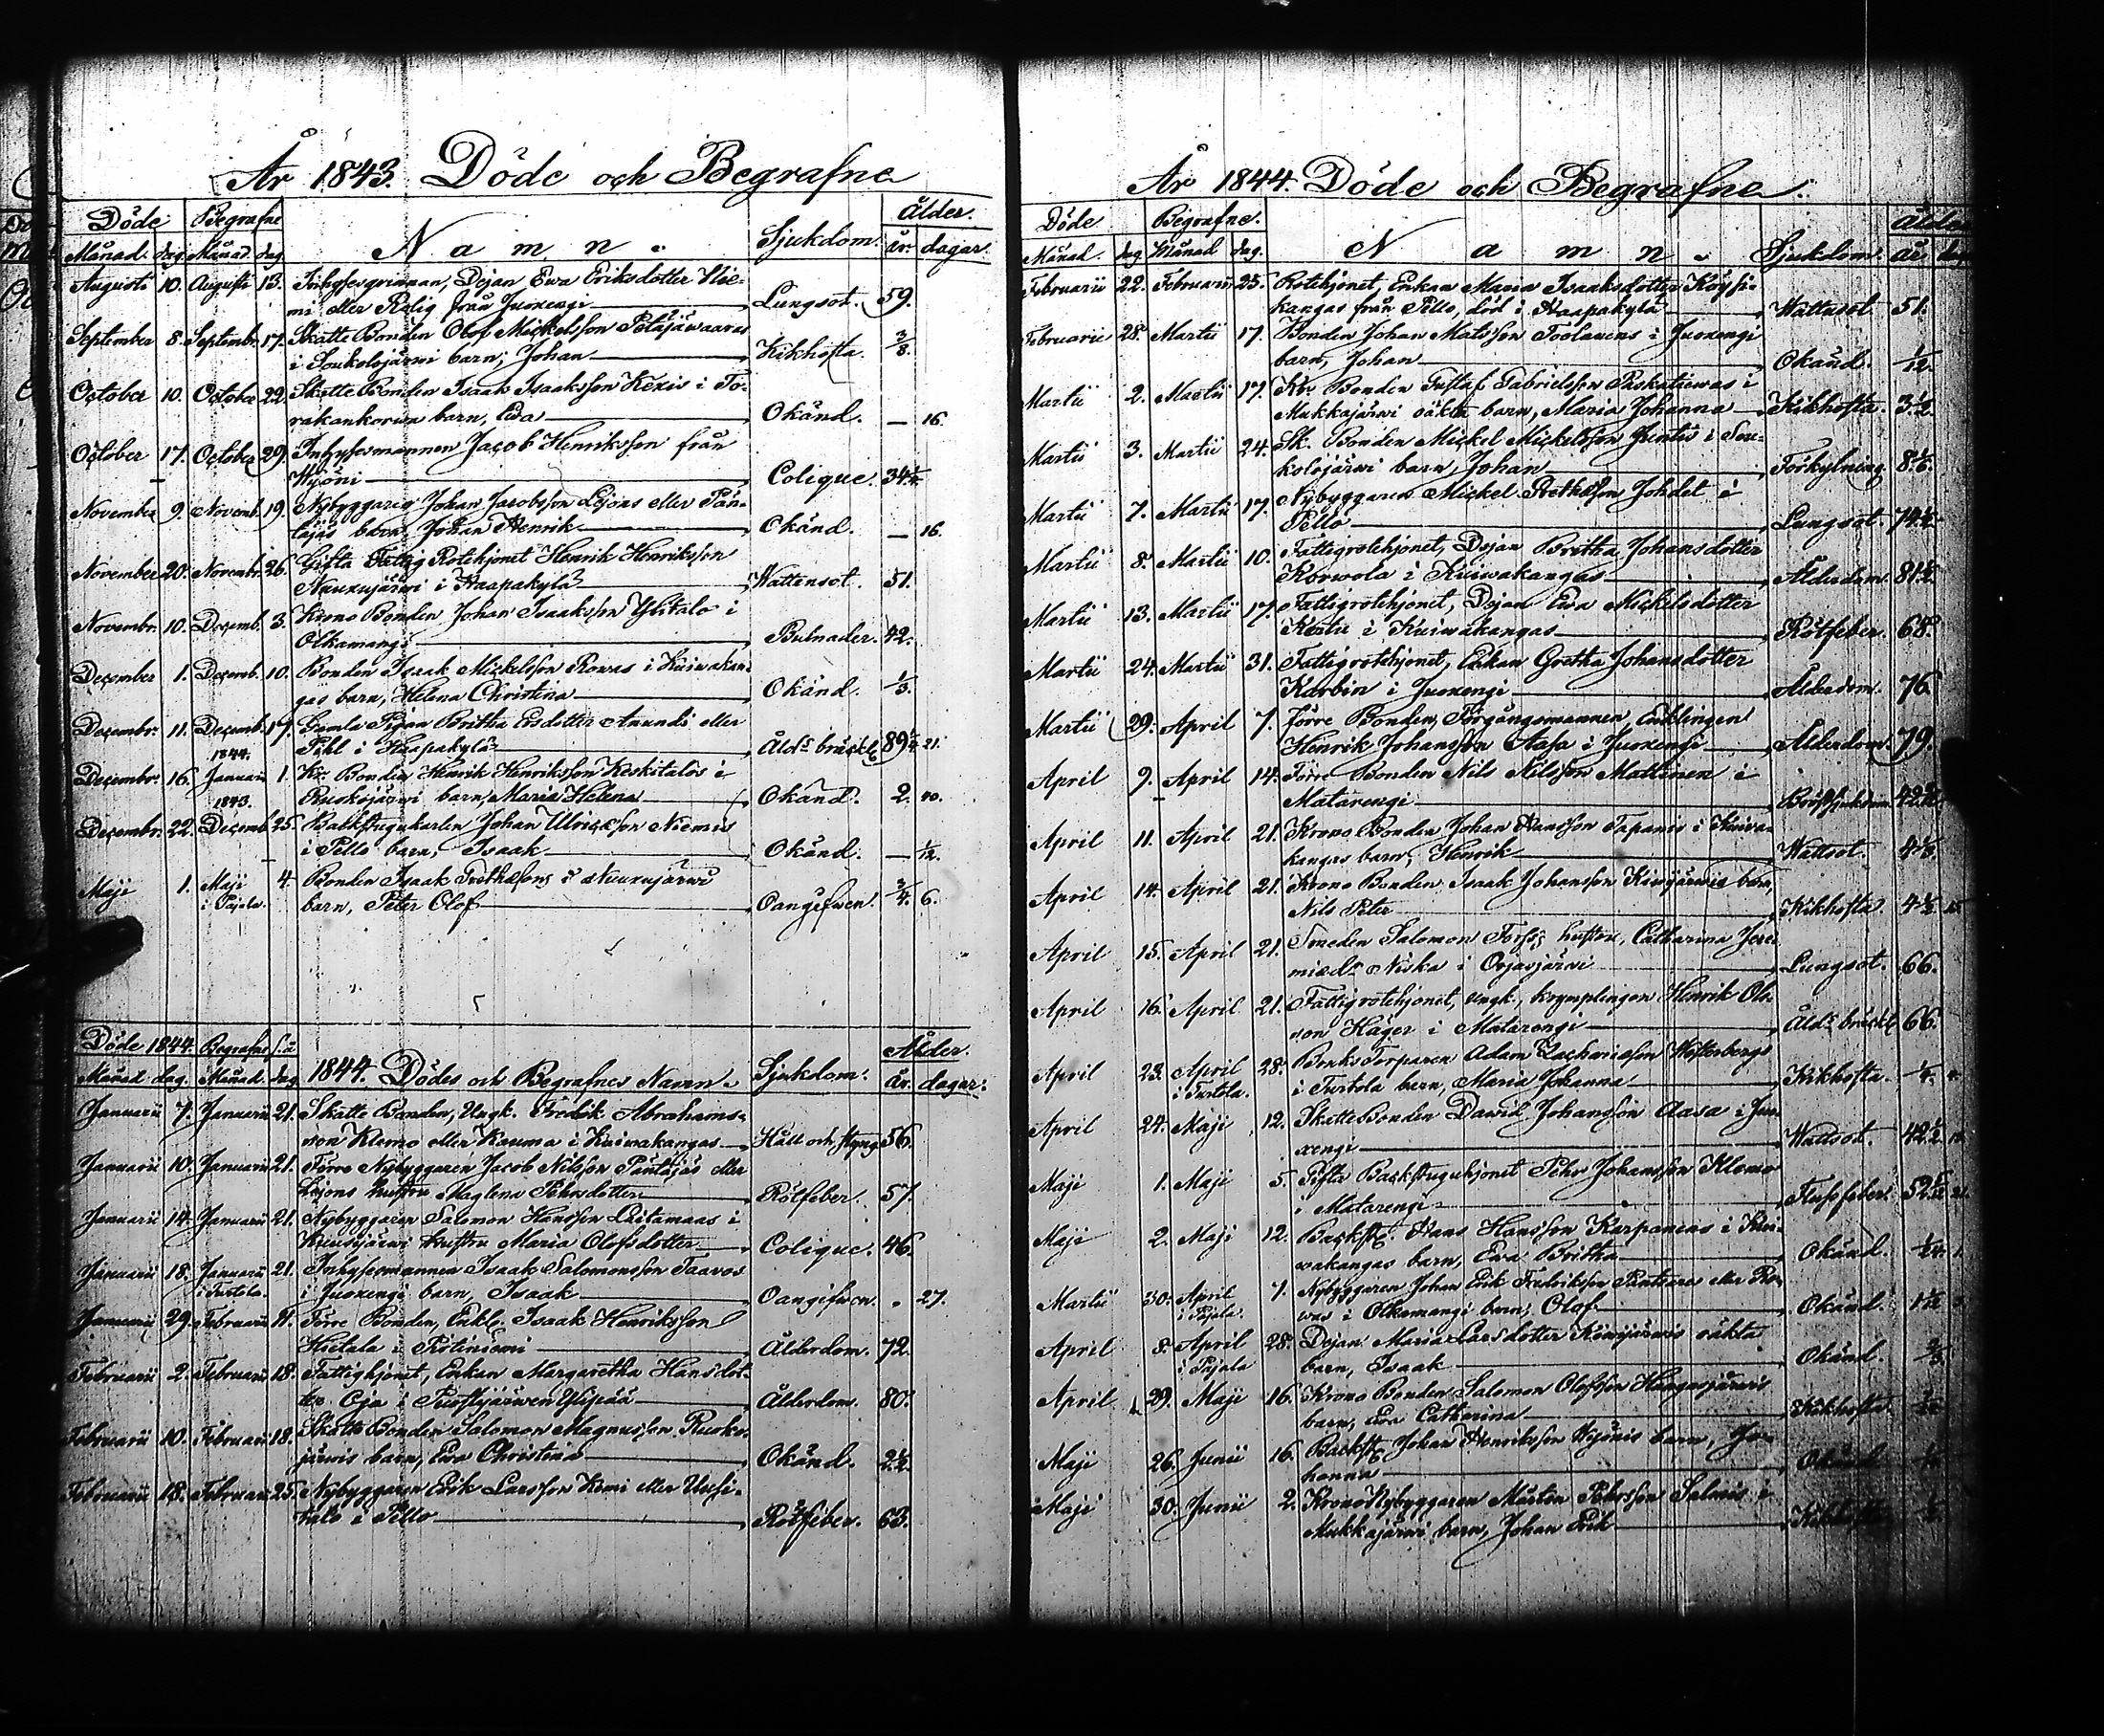 År 1843. Döde och Begrafne
Döde Begrafne Namn. Sjukdom. Ålder.
Månad. dag. Månad. dag. år. dagar.
Augusti 10. Augusti 13. Inhyses qvinnan, Dejan Ewa Eriksdotter Nie-
mi eller Rolig från Juoxengi Lungsot. 59.
September 8. Septembr. 17. Skatte Bonden Olof Mickelsson Petäjäwaaras
i Soukolojärwi barn, Johan Kikhosta. 3/8.
October 10. October 22. Skatte Bonden Isaak Isaaksson Kexis i To-
rakankorwa barn, Ewa Okänd. — 16.
October 17. October 29. Inhysesmannen Jacob Henriksson från
Wyöni Colique. 34
November 9. Novemb. 19. Nybyggaren Johan Jacobsson Lejons eller Pän-
täjäs barn, Johan Henrik Okänd. — 16.
November 20. Novembr. 26. Gifta Fattig Rotehjonet Henrik Henriksson
Nuuxujärwi i Haapakylä Wattensot. 51.
Novembr. 10. Decemb. 3. Krono Bonden Johan Isaaksson Ylitalo i
Olkamangi Bulnader. 42.
December 1. Decemb. 10. Bonden Isaak Mickelsson Rowas i Kuiwakan-
gas barn, Helena Christina Okänd. 1/3.
Decembr. 11. Decemb. 17. Gamla Pigan Britha Ersdotter Anundi eller
1844.
Pehl i Haapakylä Åld:s bräckl. 89 21.
Decembr. 16. Januarii 1. Kr. Bonden Henrik Henriksson Keskitalos i
1843.
Ruokojärwi barn, Maria Helena Okänd. 2. 40.
Decembr. 22. Decemb. 25. Backstugukarlen Johan Ulricksson Niemis
i Pello barn, Isaak Okänd. — 1/12.
Maji 1. Maji 4. Bonden Isaak Grethessons i Nuuxujärwi
i Pajala. barn, Peter Olof Oangifwen. 3/4. 6.
Döde 1844. Begrafne s.å. Ålder.
Månad dag. Månad. dag 1844. Dödes och Begrafnes Namn. Sjukdom. år. dagar.
Januarii 7. Januarii 21. Skatte Bonden, Ungk. Fredrik Abrahams-
son Klemo eller Kauma i Kuiwakangas Håll och styng 56.
Januarii 10. Januarii 21. Förre Nybyggaren Jacob Nilsson Päntäjäs eller
Lejons hustru Maglena Pehrsdotter Rötfeber. 57.
Januarii 14. Januarii 21. Nybyggaren Salomon Hansson Leitamaas i
Kuusijärwi hustru Maria Olofsdotter Colique. 46.
Januarii 18. Januarii 21. Inhysesmannen Isaak Salomonsson Taavos
i Turtola. i Juoxengi barn, Isaak Oangifwen. 27.
Januarii 29. Februarii 11. Förre Bonden, Enkl. Isaak Henriksson
Hietala i Ristiniemi Ålderdom. 72.
Februarii 2. Februarii 18. Fattighjonet, Enkan Margaretha Hansdot-
ter Oja i Puostijärwen Ylipää Ålderdom. 80.
Februarii 10. Februarii 18. Skatte Bonden Salomon Magnusson Ruoko-
järwis barn, Ewa Christina Okänd. 2 1/2.
Februarii 18. Februarii 25. Nybyggaren Erik Larsson Kemi eller Uusi-
talo i Pello Rötfeber. 63.
År 1844. Döde och Begrafne.
Döde Begrafne. Namn. Sjukdom. Ålder
Månad. dag Månad dag. år
Februarii 22. Februarii 25. Rotehjonet, Enkan Maria Isaaksdotter Köysi-
kangas från Pello, död i Haapakylä Wattusot. 51.
Februarii 28. Martii 17. Bonden Johan Matsson Toolanens i Juoxengi
barn, Johan Okänd. 1/12.
Martii 2. Martii 17. Kr. Bonden Gustaf Gabrielsson Paskatiewas i
Mukkajärwi oäkta barn, Maria Johanna Kikhosta. 3 1/2.
Martii 3. Martii 24. Sk. Bonden Mickel Mickelsson Juntis i Sou-
kolojärwi barn, Johan Förkylning. 8
Martii 7. Martii 17. Nybyggaren Mickel Grethesson Johdet i
Pello Lungsot. 74
Martii 8. Martii 10. Fattigrotehjonet, Dejan Britha Johansdotter
Korwola i Kuiwakangas Ålderdom. 81
Martii 13. Martii 17. Fattigrotehjonet, Dejan Ewa Mickelsdotter
Kostu i Kuiwakangas Rötfeber. 68.
Martii 24. Martii 31. Fattigrotehjonet, Enkan Gretha Johansdotter
Karbin i Juoxengi Ålderdom. 76.
Martii 29. April 7. Förre Bonden, Förgångsmannen, Enklingen
Henrik Johansson Aasa i Juoxengi Ålderdom. 79.
April 9. April 14. Förre Bonden Nils Nilsson Mattinen i
Matarengi Bröstsjukdom. 42
April 11. April 21. Krono Bonden Johan Hansson Tapanis i Kuiwa-
kangas barn, Henrik Wattsot. 4
April 14. April 21. Krono Bonden Isaak Johansson Kiwijärwis barn,
Nils Peter Kikhosta. 4 15.
April 15. April 21. Smeden Salomon Forss's hustru, Catharina Jere-
miaed:r Niska i Orjasjärwi Lungsot. 66.
April 16. April 21. Fattigrotehjonet, Ungk., krymplingen Henrik Ols-
son Häger i Matarengi Åld:s bräckl. 66.
April 23. April 28. Bruks Torparen Adam Zachrisson Westerbergs
i Turtola. i Turtola barn, Maria Johanna Kikhosta.
April 24. Maji 12. Skatte Bonden Dawid Johansson Aasa i Juo-
xengi Wattsot. 42
Maji 1. Maji 5. Gifta Backstuguhjonet Pehr Johansson Klemo
i Matarengi Flussfeber. 52
Maji 2. Maji 12. Backst. Hans Hansson Karpancas i Kui-
wakangas barn, Ewa Britha Okänd.
Martii 30. April 7. Nybyggaren Johan Erik Fredriksson Panturas eller Ro-
i Pajala. was i Olkamangi barn, Olof Okänd.
April 8. April 28. Dejan Maria Larsdotter Kiwijärwis oäkta
i Pajala barn, Isaak Okänd.
April 29. Maji 16. Krono Bonden Salomon Olofsson Haapajärwis
barn, Ewa Catharina Kikhosta.
Maji 26. Junii 16. Backst. Johan Henriksson Wyönis barn, Jo-
hanna Okänd
Maji 30. Junii 2. Krono Nybyggaren Mårten Pehrsson Salmis i
Mukkajärwi barn, Johan Erik